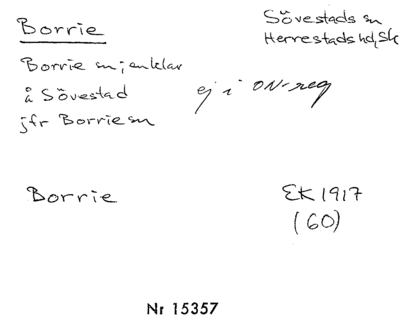 Borrie
Sövestads sn
Herrestads hd, Sk
Borrie sn; enklav
å Sövestad
jfr Borrie sn
ej i ON-reg
Borrie
EK 1917
(60)
Nr 15357